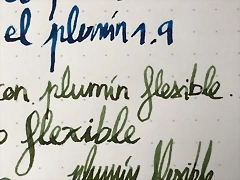 el plumín 1.9
con plumín flexible.
flexible
plumín flexible